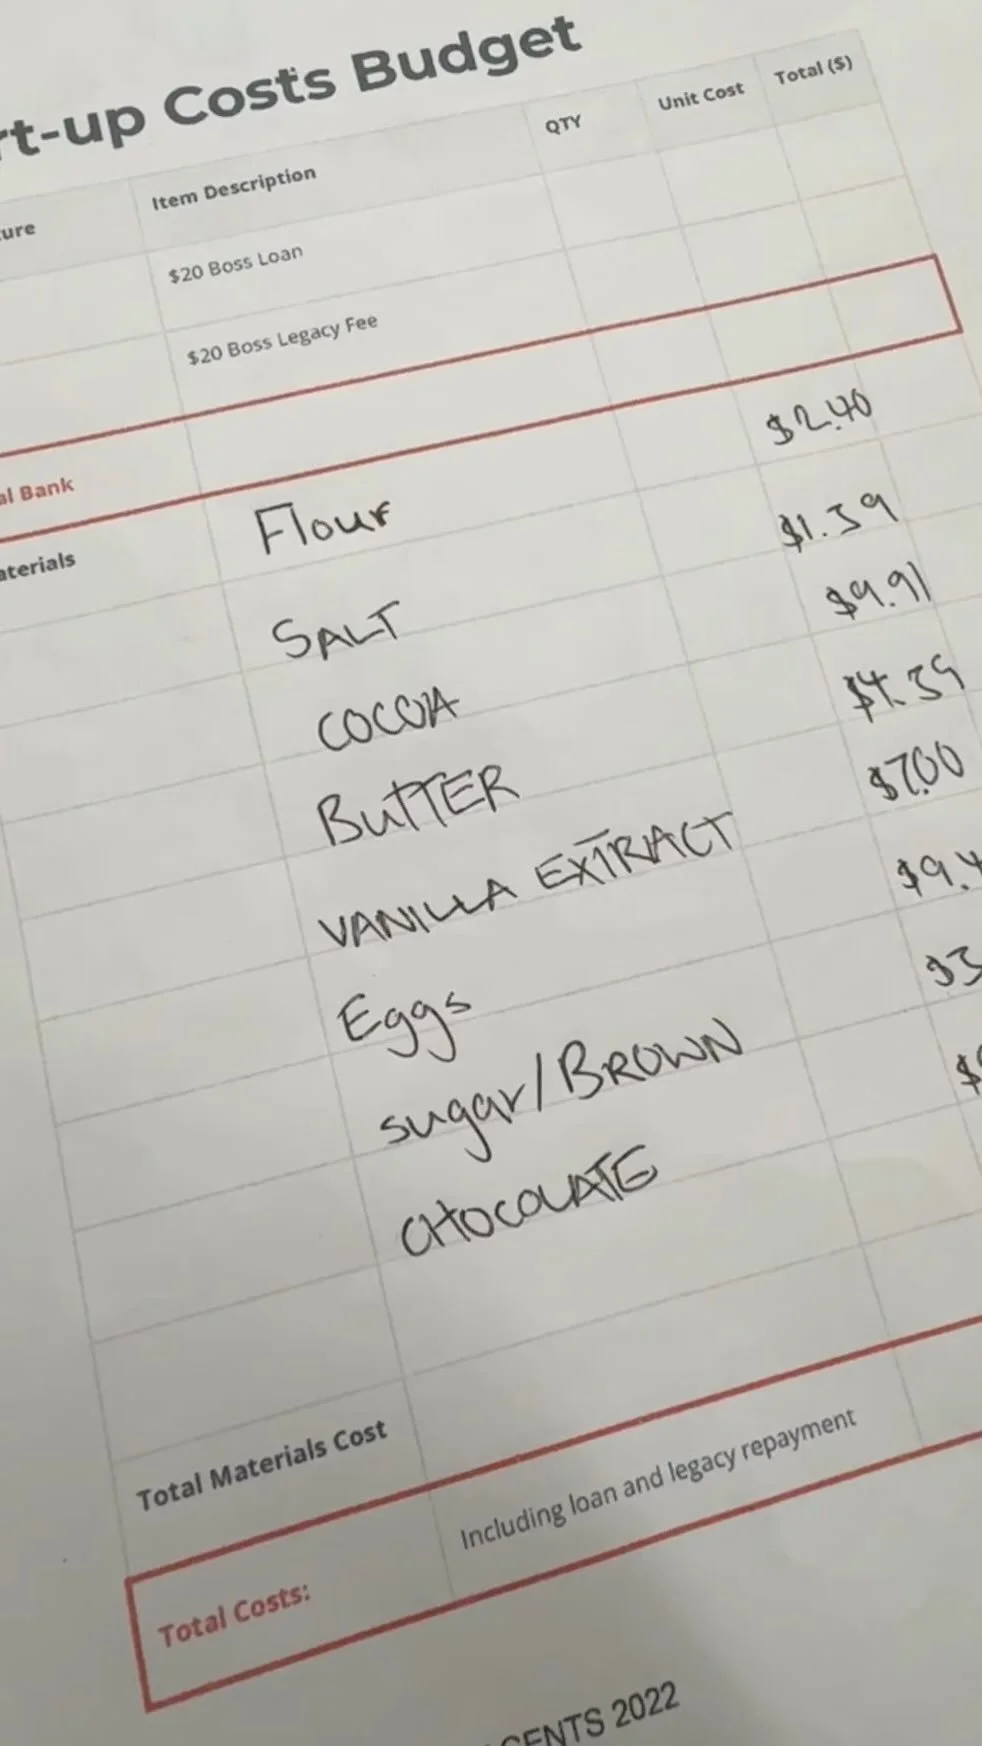 rt-up Costs Budget
ure Item Description QTY Unit Cost Total ($)
$20 Boss Loan
$20 Boss Legacy Fee
al Bank
aterials Flour $2.40
SALT $1.39
COCOA $9.91
BUTTER $4.39
VANILLA EXTRACT $7.00
Eggs $9.4
sugar/BROWN $3
CHOCOLATE $
Total Materials Cost
Total Costs: Including loan and legacy repayment
CENTS 2022